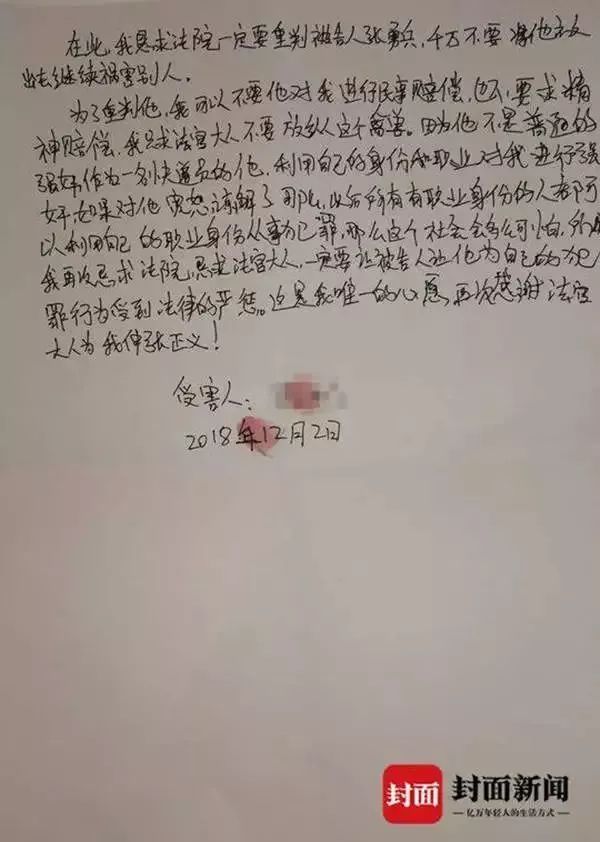 在此，我恳求法院一定要重判被告人张勇兵，千万不要将他放
出去继续祸害别人。
为了重判他，我可以不要他对我进行民事赔偿，也不要求精
神赔偿，我只求法官大人不要放纵这个禽兽。因为他不是普通的
强奸，作为一名快递员的他，利用自己的身份和职业对我进行强
奸，如果对他宽恕谅解了，那么以后所有有职业身份的人都可
以利用自己的职业身份从事犯罪，那么这个社会会多么可怕，
我再次恳求法院，恳求法官大人，一定要让被告人让他为自己的犯
罪行为受到法律的严惩。这是我唯一的心愿，再次感谢法官
大人为我伸张正义！
受害人：
2018年12月2日
封面 封面新闻
亿万年轻人的生活方式